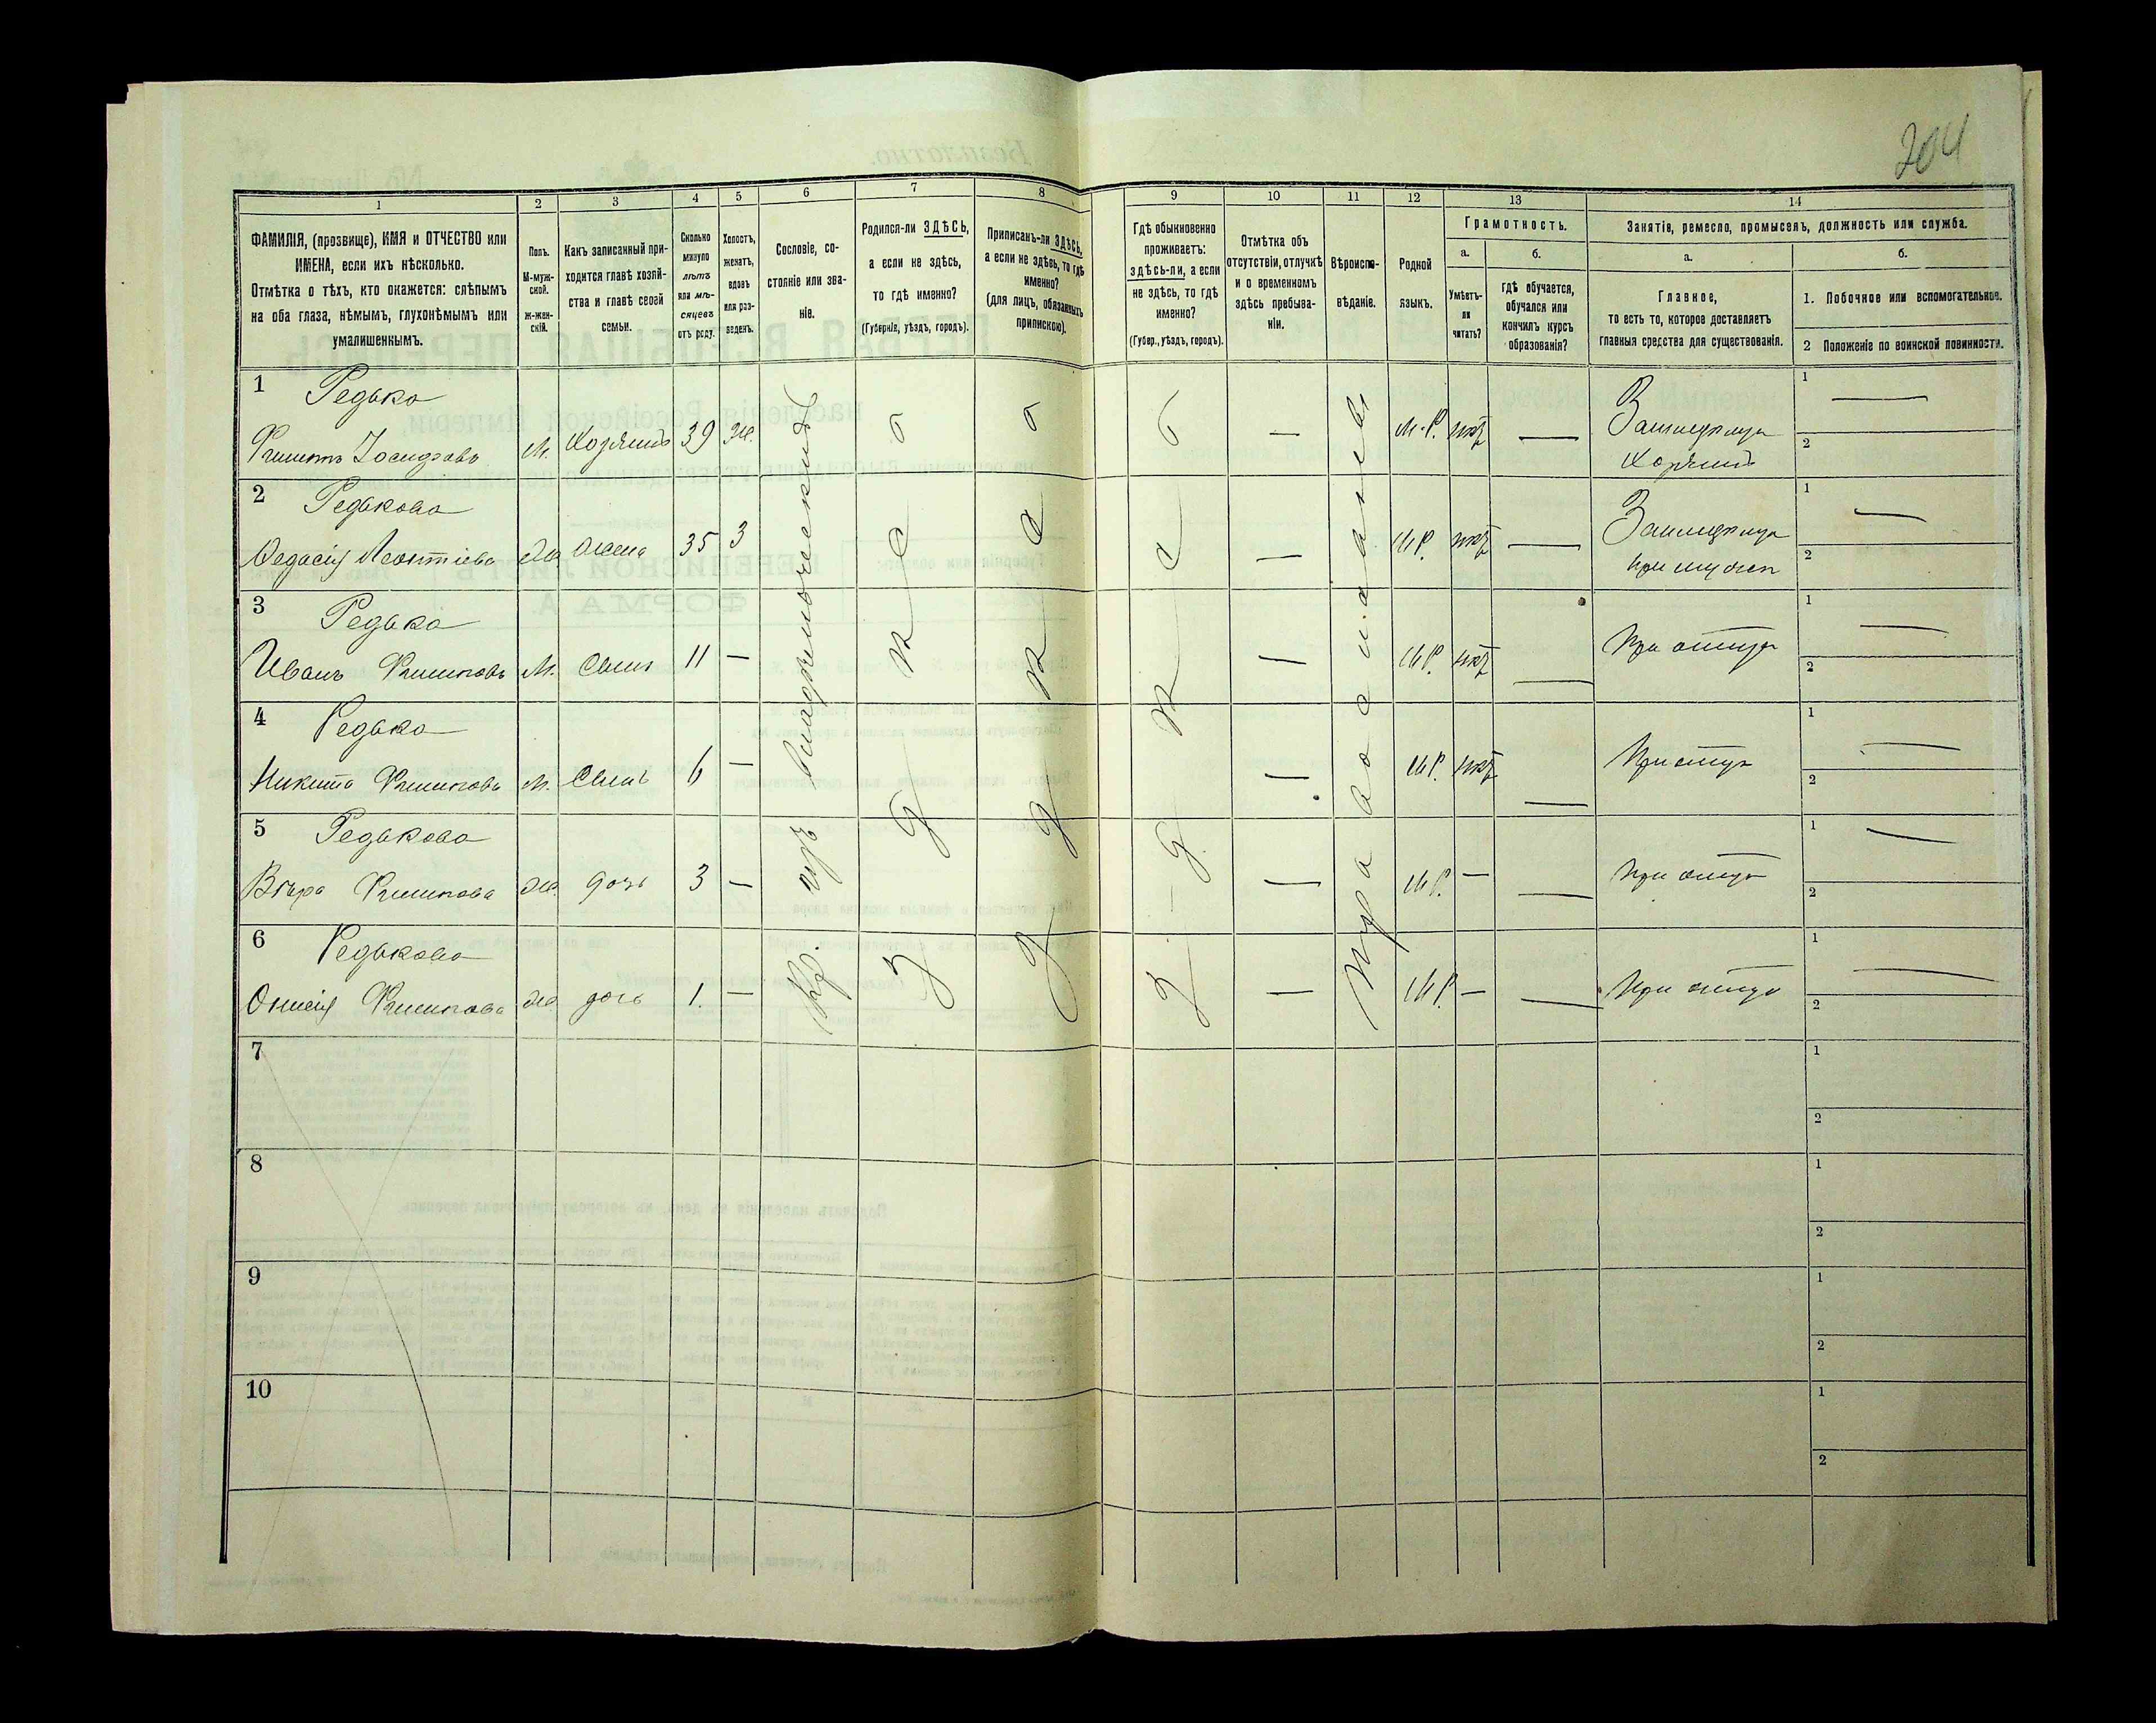 204
1 2 3 4 5 6 7 8 9 10 11 12 13 14
ФАМИЛІЯ, (прозвище), ИМЯ и ОТЧЕСТВО или
ИМЕНА, если ихъ нѣсколько.
Отмѣтка о тѣхъ, кто окажется: слѣпымъ
на оба глаза, нѣмымъ, глухонѣмымъ или
умалишеннымъ.
Полъ.
М-муж-
ской.
Ж-жен-
скій.
Какъ записанный при-
ходится главѣ хозяй-
ства и главѣ своей
семьи.
Сколько
минуло
лѣтъ
или мѣ-
сяцевъ
отъ роду.
Холостъ,
женатъ,
вдовъ
или раз-
веденъ.
Сословіе, со-
стояніе или зва-
ніе.
Родился-ли ЗДѢСЬ,
а если не здѣсь,
то гдѣ именно?
(Губернія, уѣздъ, городъ).
Приписанъ-ли ЗДѢСЬ,
а если не здѣсь, то гдѣ
именно?
(для лицъ, обязанныхъ
припискою).
Гдѣ обыкновенно
проживаетъ:
здѣсь-ли, а если
не здѣсь, то гдѣ
именно?
(Губер., уѣздъ, городъ).
Отмѣтка объ
отсутствіи, отлучкѣ
и о временномъ
здѣсь пребыва-
ніи.
Вѣроиспо-
вѣданіе.
Родной
языкъ.
Грамотность.
а.
Умѣетъ-
ли
читать?
б.
гдѣ обучается,
обучался или
кончилъ курсъ
образованія?
Занятія, ремесло, промыселъ, должность или служба.
а.
Главное,
то есть то, которое доставляетъ
главныя средства для существованія.
б.
1. Побочное или вспомогательное.
2 Положеніе по воинской повинности.
1 Редько
Филиппъ Іосифовъ М. Хозяинъ 39 Ж. — М.Р. нѣт — Хозяинъ
1 —
2
кр. изъ владѣльческихъ
Здѣсь
Здѣсь
Здѣсь
Православный
2 Редькова
Федосія Леонтіева Ж. жена 35 З — М.Р. нѣт — при мужѣ
1 —
2
3 Редько
Иванъ Филиповъ М. Сынъ 11 — — М.Р. нѣт — При отцѣ
1 —
2
4 Редько
Никита Филиповъ М. Сынъ 6 — — М.Р. нѣт — При отцѣ
1 —
2
5 Редькова
Вѣра Филипова Ж. дочь 3 — — М.Р. — — При отцѣ
1 —
2
6 Редькова
Филипова Ж. дочь 1. — — М.Р. — — При отцѣ
1 —
2
7
1
2
8
1
2
9
1
2
10
1
2